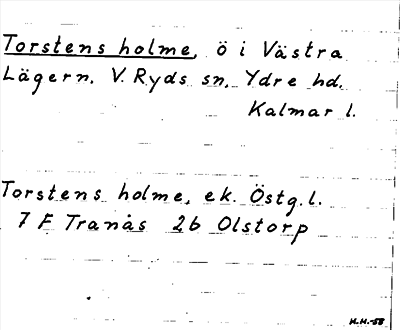 Torstens holme, ö i Västra
Lägern. V. Ryds sn, Ydre hd.
Kalmar l.
Torstens holme, ek. Östg. l.
7 F Tranås 2b Olstorp
H.H.-58